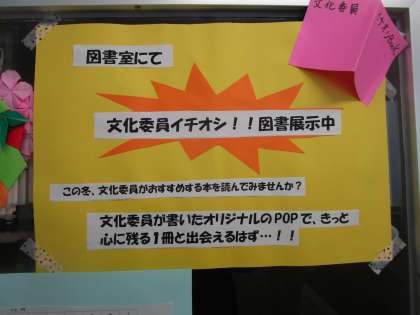 図書室にて
文化委員イチオシ！！図書展示中
この冬、文化委員がおすすめする本を読んでみませんか？
文化委員が書いたオリジナルのPOPで、きっと
心に残る1冊と出会えるはず…！！
文化委員